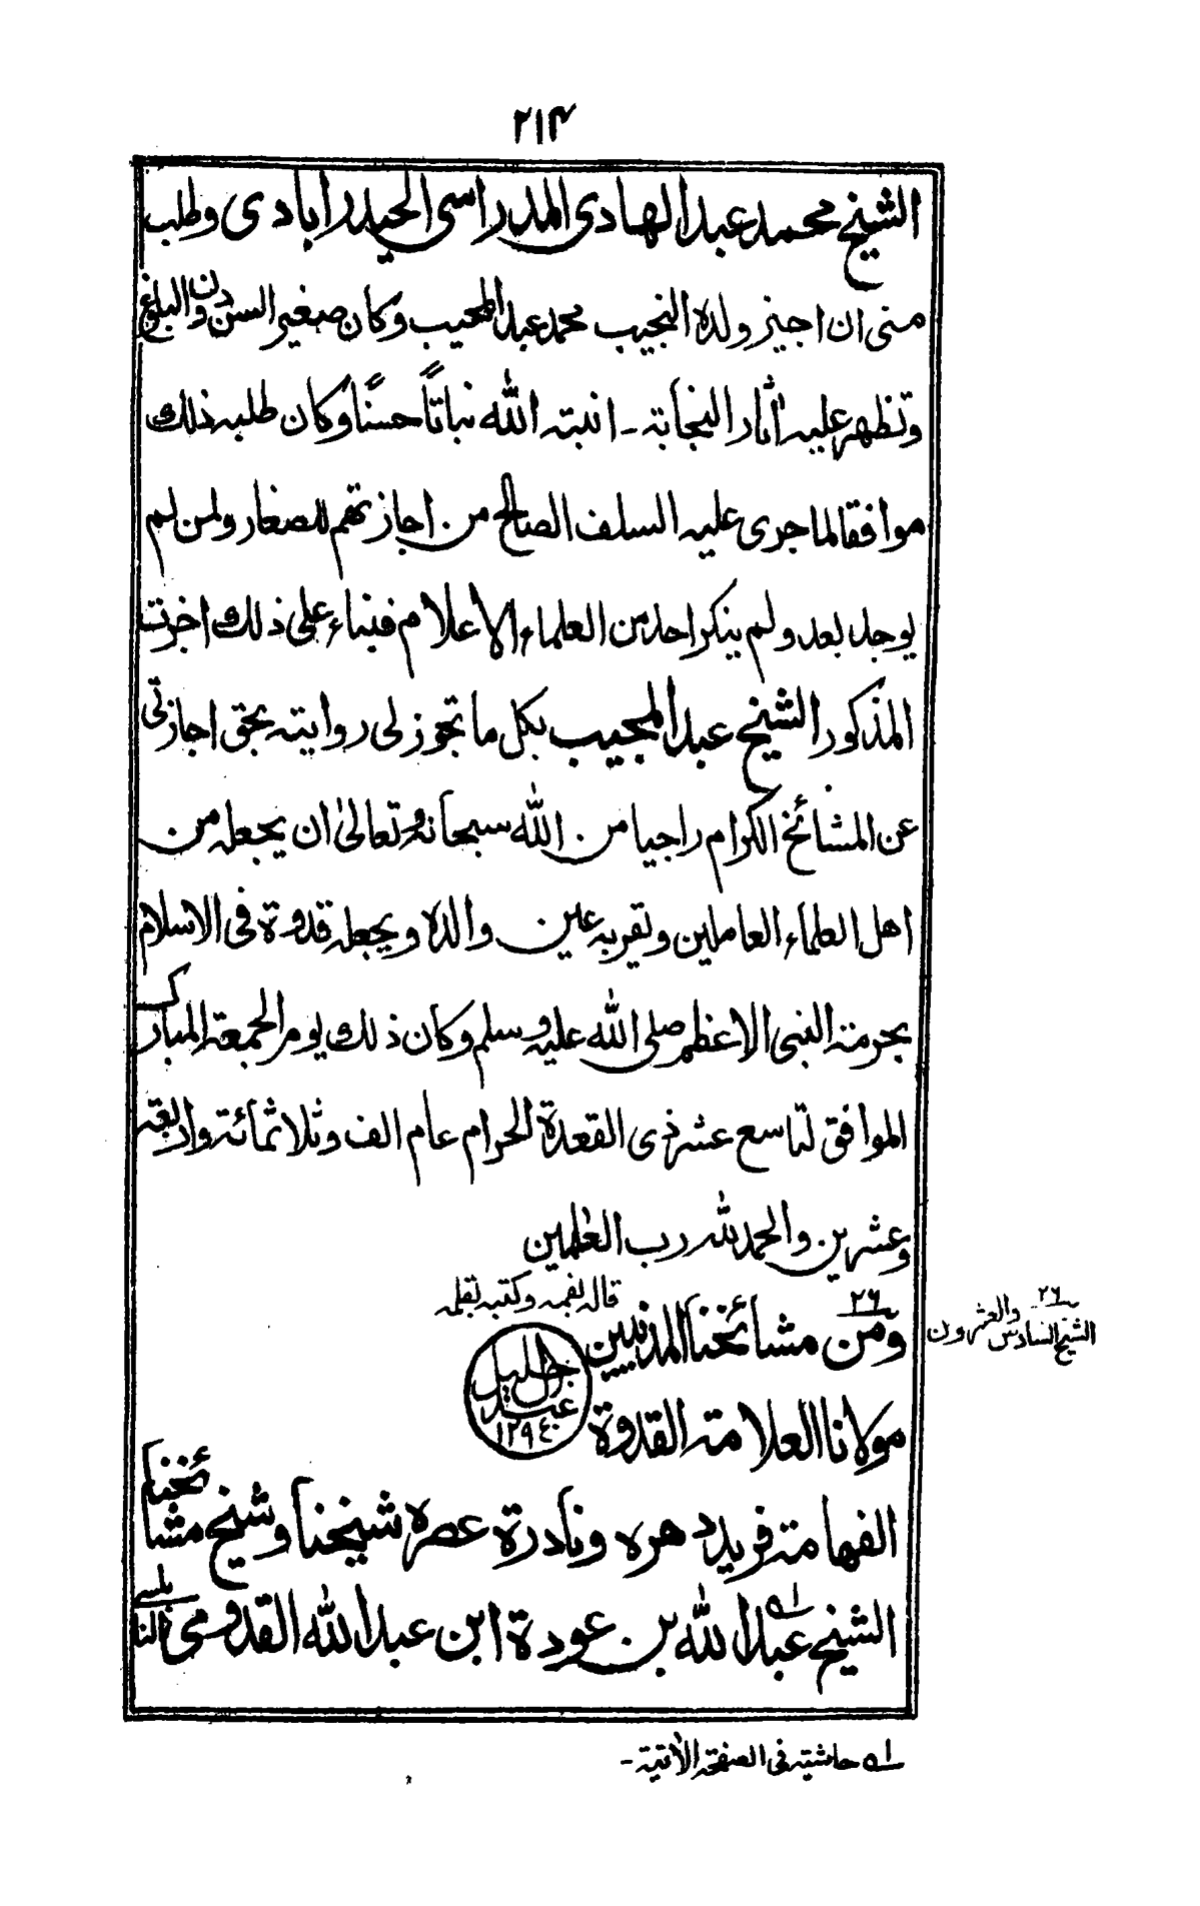 ٢١٣
الشيخ محمد عبد الهادى المدراسى الحيدرابادى وطلب
منى ان اجيز ولده النجيب محمد عبد المجيب وكان صغير السن دون البلوغ
وتظهر عليه آثار النجابة - انبته الله نباتاً حسنًا وكان طلبه ذلك
موافقا لما جرى عليه السلف الصالح من اجازتهم للصغار ولمن لم
يوجد بعد ولم ينكر احد من العلماء الاعلام فبناء على ذلك اجزت
المذكور الشيخ عبد المجيب بكل ما تجوز لى روايته بحق اجازتى
عن المشائخ الكرام راجيا من الله سبحانه وتعالىٰ ان يجعله من
اهل العلماء العاملين وتقر به عين والده ويجعله قدوة فى الاسلام
بحرمة النبى الاعظم صلى الله عليه وسلم وكان ذلك يوم الجمعة المبارك
الموافق لتاسع عشر ذى القعدة الحرام عام الف وثلاثمائة واربعة
وعشرين والحمد لله رب العٰلمين
قاله بفمه وكتبه بقلمه
عبد الجليل ١٢٩٤
٢٦ ومن مشائخنا المدنيين
٢٦ الشيخ السادس والعشرون
مولانا العلامة القدوة
الفهامة فريد دهره ونادرة عصره شيخنا وشيخ مشائخنا
الشيخ عبد الله بن عودة ابن عبد الله القدومى النابلسى
ے١ حاشيته فى الصفحة الآتية -